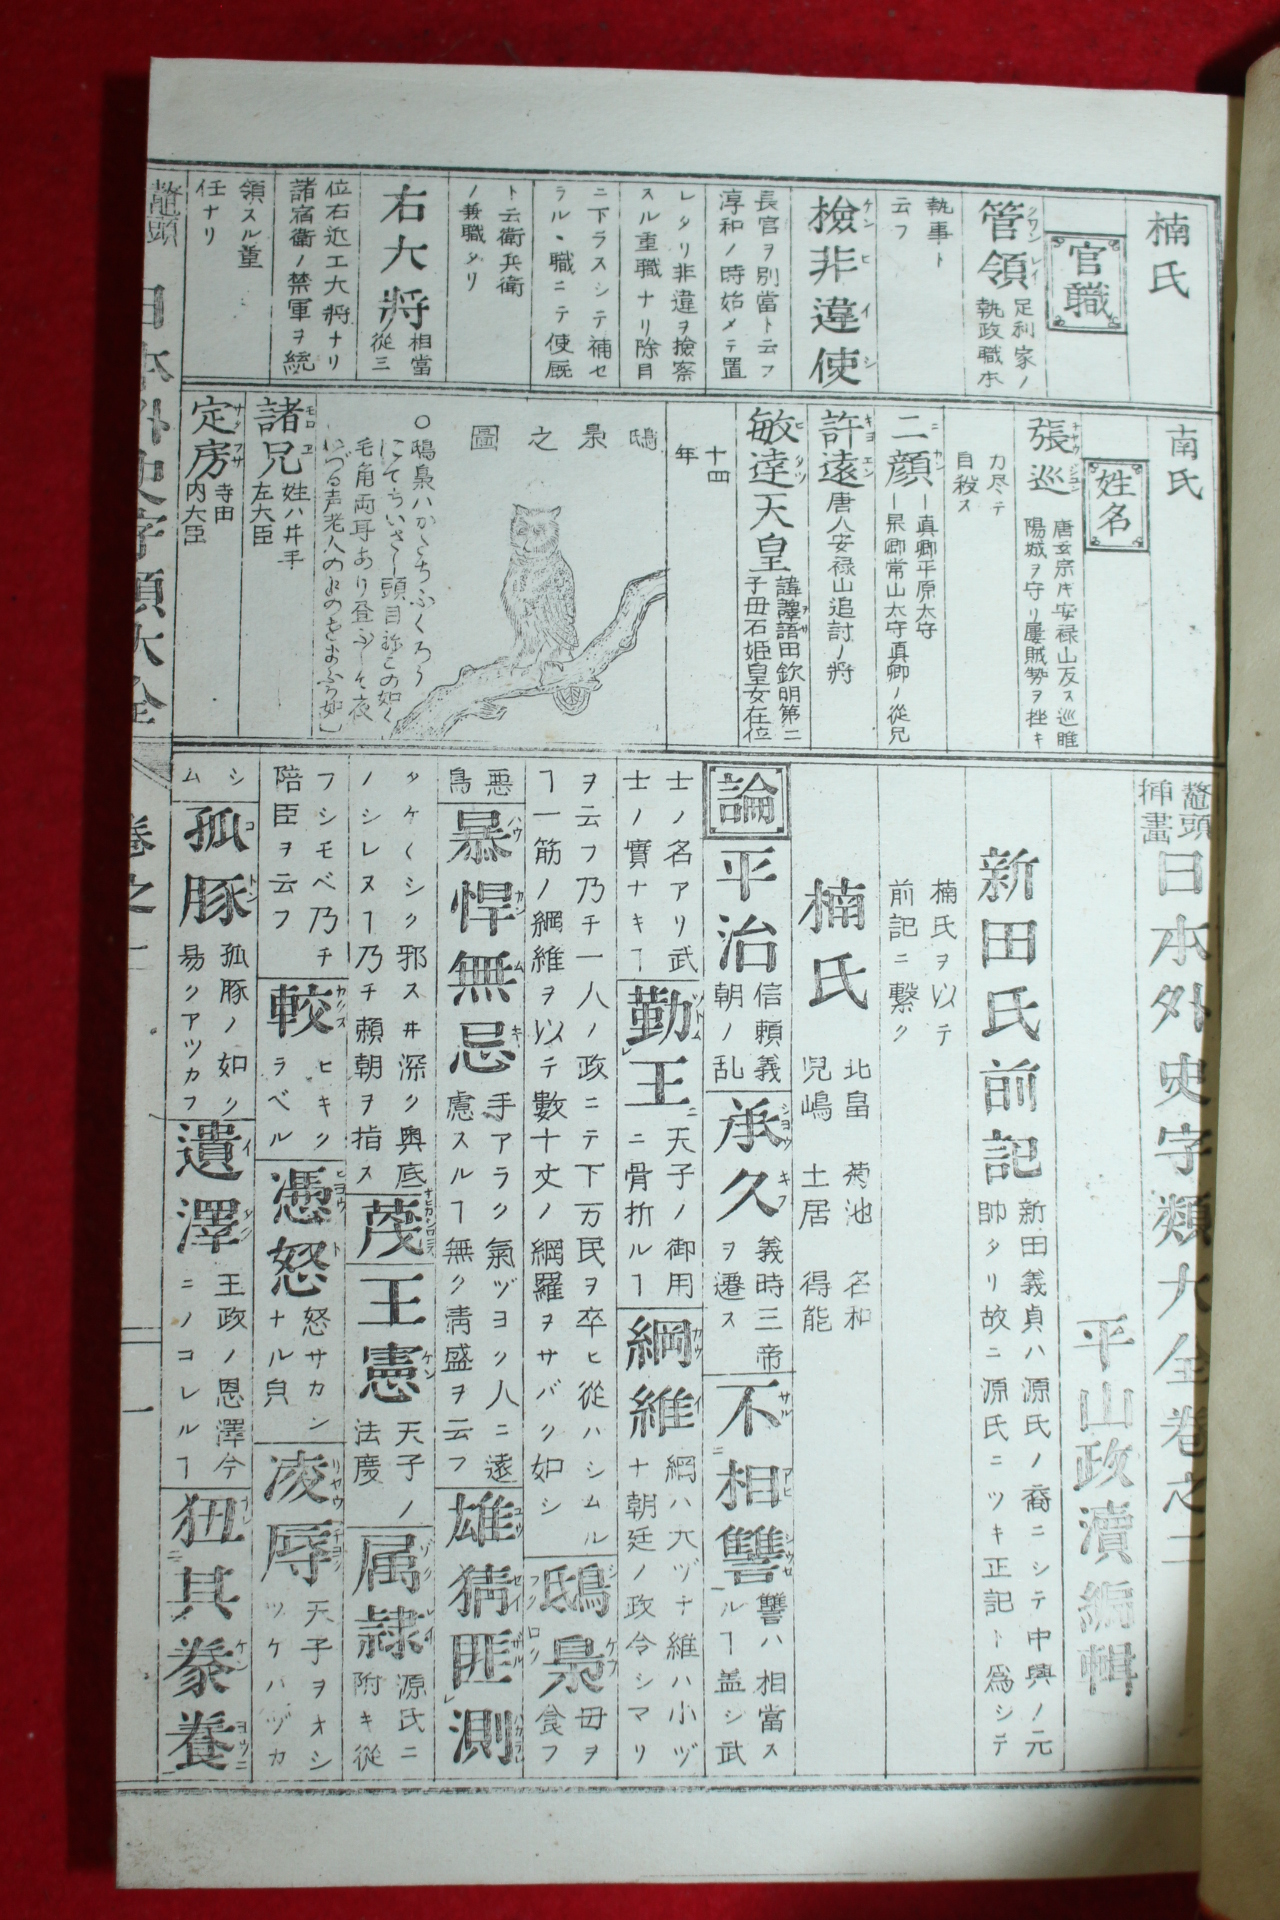 楠氏
官職
管領 足利家ノ執政職本
執事ト云フ
撿非違使
長官ヲ別當ト云フ淳和ノ時始メテ置
レタリ非違ヲ撿察スル重職ナリ除目
ニ下ラスシテ補セラルヽ職ニテ使厩
ト云衛兵衛ノ兼職タリ
右大將 相當從三
位右近エ大將ナリ諸宿衛ノ禁軍ヲ統
領スル重任ナリ
南氏
姓名
張巡 唐玄宗ノキ安禄山反ス巡睢陽城ヲ守リ屢賊勢ヲ挫キ
力尽テ自殺ス
二顔 ー真卿平原太守ー杲卿常山太守真卿ノ從兄
許遠 唐人安禄山追討ノ將
敏達天皇 諱譯語田欽明第二子母石姫皇女在位
十四年
鴟梟之圖
諸兄 姓ハ井手左大臣
定房 寺田内大臣
鼇頭挿畫 日本外史字類大全卷之二
平山政瀆編輯
新田氏前記 新田義貞ハ源氏ノ裔ニシテ中興ノ元帥タリ故ニ源氏ニツキ正記ト爲シテ
楠氏ヲ以テ前記ニ繫ク
楠氏 北畠 菊池 名和 児嶋 土居 得能
論 平治 信頼義朝ノ乱 承久 義時三帝ヲ遷ス 不相讐 讐ハ相當スルヿ盖シ武
士ノ名アリ武士ノ實ナキヿ 勤王 天子ノ御用ニ骨折ルヿ 綱維 綱ハ大ヅナ維ハ小ヅナ朝廷ノ政令シマリ
ヲ云フ乃チ一人ノ政ニテ下万民ヲ卒ヒ從ハシムルヿ一筋ノ綱維ヲ以テ數十丈ノ網羅ヲサバク如シ 鴟梟 母ヲ食フ
悪鳥 暴悍無忌 手アラク氣ヅヨク人ニ遠慮スルヿ無ク清盛ヲ云フ 雄猜匪測
タケ〱シク邪スヰ深ク奥底ノシレヌヿ乃チ頼朝ヲ指ス 蔑 王憲 天子ノ法度 属隷 源氏ニ附キ從
フシモベ乃チ陪臣ヲ云フ 較 ヒキクラベル 憑怒 怒サカンナル皃 凌辱 天子ヲオシツケハヅカ
シム 孤豚 孤豚ノ如ク易クアツカフ 遺澤 王政ノ恩澤今ニノコレルヿ 狃其豢養
鼇頭 日本外史字類大全 卷之二 一